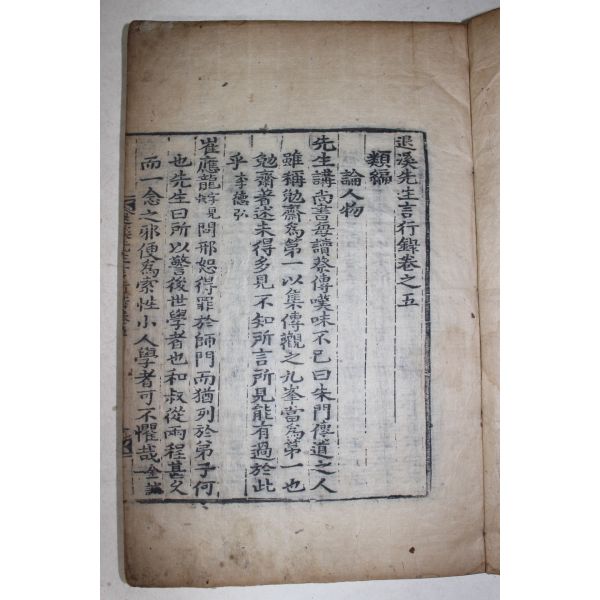 退溪先生言行錄卷之五
類編
論人物
先生講尚書每讀蔡傳嘆味不已曰朱門傳道之人
雖稱勉齋爲第一以集傳觀之九峯當爲第一也
勉齋著述未得多見不知所言所見能有過於此
乎 李德弘
崔應龍見問邢恕得罪於師門而猶列於弟子何
也先生曰所以警後世學者也和叔從兩程甚久
而一念之邪便爲索性小人學者可不懼哉 金誠